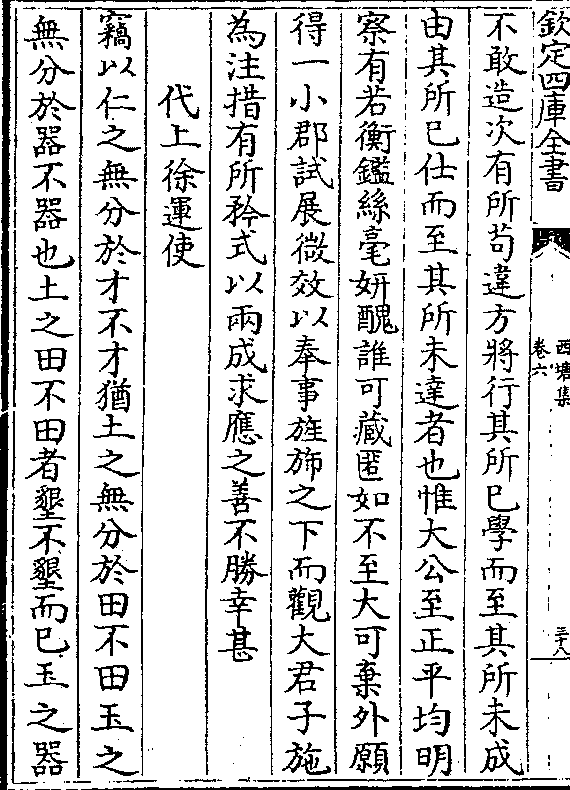 欽定四庫全書
西塘集
卷六
三十八
不敢造次有所苟違方將行其所已學而至其所未成
由其所已仕而至其所未達者也惟大公至正平均明
察有若衡鑑絲毫妍醜誰可藏匿如不至大可棄外願
得一小郡試展微效以奉事旌斾之下而觀大君子施
為注措有所矜式以兩成求應之善不勝幸甚
代上徐運使
竊以仁之無分於才不才猶土之無分於田不田玉之
無分於器不器也土之田不田者墾不墾而已玉之器